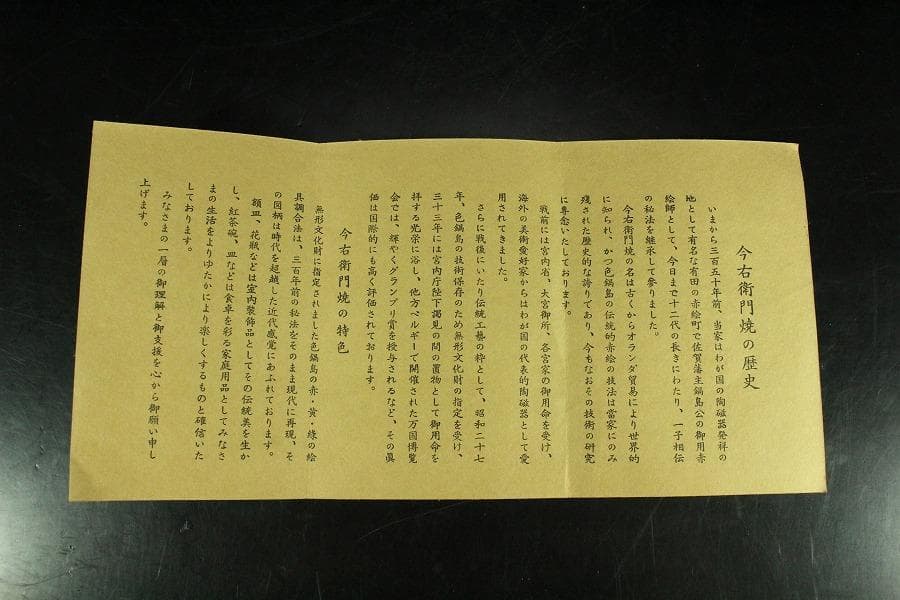 今右衛門焼の歴史
いまから三百五十年前、当家はわが国の陶磁器発祥の
地として有名な有田の赤絵町で佐賀藩主鍋島公の御用赤
絵師として、今日まで十二代の長きにわたり、一子相伝
の秘法を継承して参りました。
今右衛門焼の名は古くからオランダ貿易により世界的
に知られ、かつ色鍋島の伝統的赤絵の技法は当家にのみ
残された歴史的な誇りであり、今もなおその技術の研究
に専念いたしております。
戦前には宮内省、大宮御所、各宮家の御用命を受け、
海外の美術愛好家からはわが国の代表的陶磁器として愛
用されてきました。
さらに戦後にいたり伝統工藝の粋として、昭和二十七
年、色鍋島の技術保存のため無形文化財の指定を受け、
三十三年には宮内庁陛下謁見の間の置物として御用命を
拝する光栄に浴し、他方ベルギーで開催された万国博覧
会では、輝やくグランプリ賞を授与されるなど、その真
価は国際的にも高く評価されております。
今右衛門焼の特色
無形文化財に指定されました色鍋島の赤・黄・緑の絵
具調合法は、三百年前の秘法をそのまま現代に再現、そ
の図柄は時代を超越した近代感覚にあふれております。
額皿、花瓶などは室内装飾品としてその伝統美を生か
し、紅茶碗、皿などは食卓を彩る家庭用品としてみなさ
まの生活をよりゆたかにより楽しくするものと確信いた
しております。
みなさまの一層の御理解と御支援を心から御願い申し
上げます。